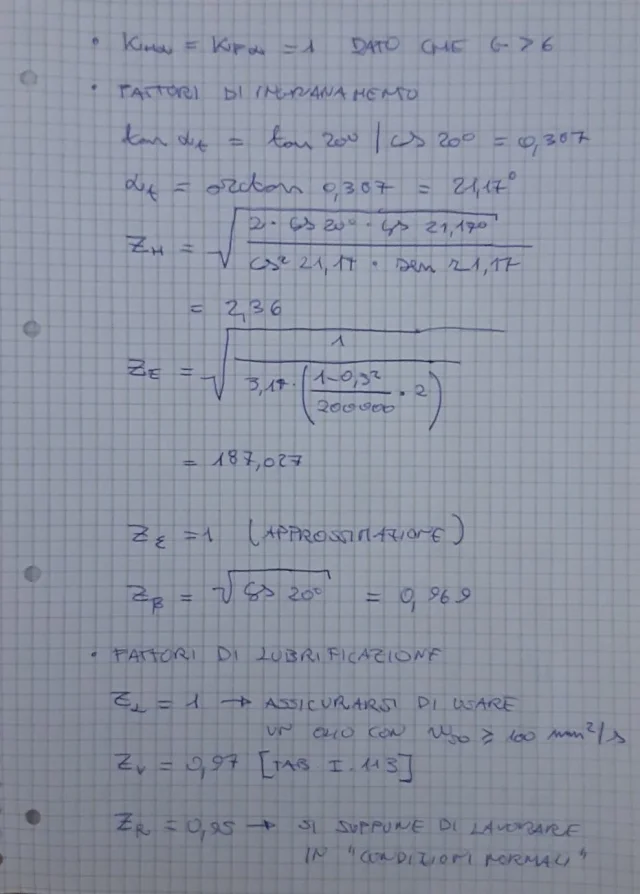 • KHα = KFα = 1 DATO CHE G > 6
• FATTORI DI INGRANAMENTO
tan αt = tan 20° / cos 20° = 0,387
αt = arctan 0,387 = 21,17°
ZH = √(2 · cos 20° · cos 21,17° / cos² 21,17 · sen 21,17)
= 2,36
ZE = √(1 / 3,14 · (1-0,3² / 200000 · 2))
= 187,027
Zε = 1 (APPROSSIMAZIONE)
Zβ = √cos 20° = 0,969
• FATTORI DI LUBRIFICAZIONE
ZL = 1 → ASSICURARSI DI USARE
UN OLIO CON ν50 ≥ 100 mm²/s
Zv = 0,97 [TAB I.113]
ZR = 0,95 → SI SUPPONE DI LAVORARE
IN "CONDIZIONI NORMALI"